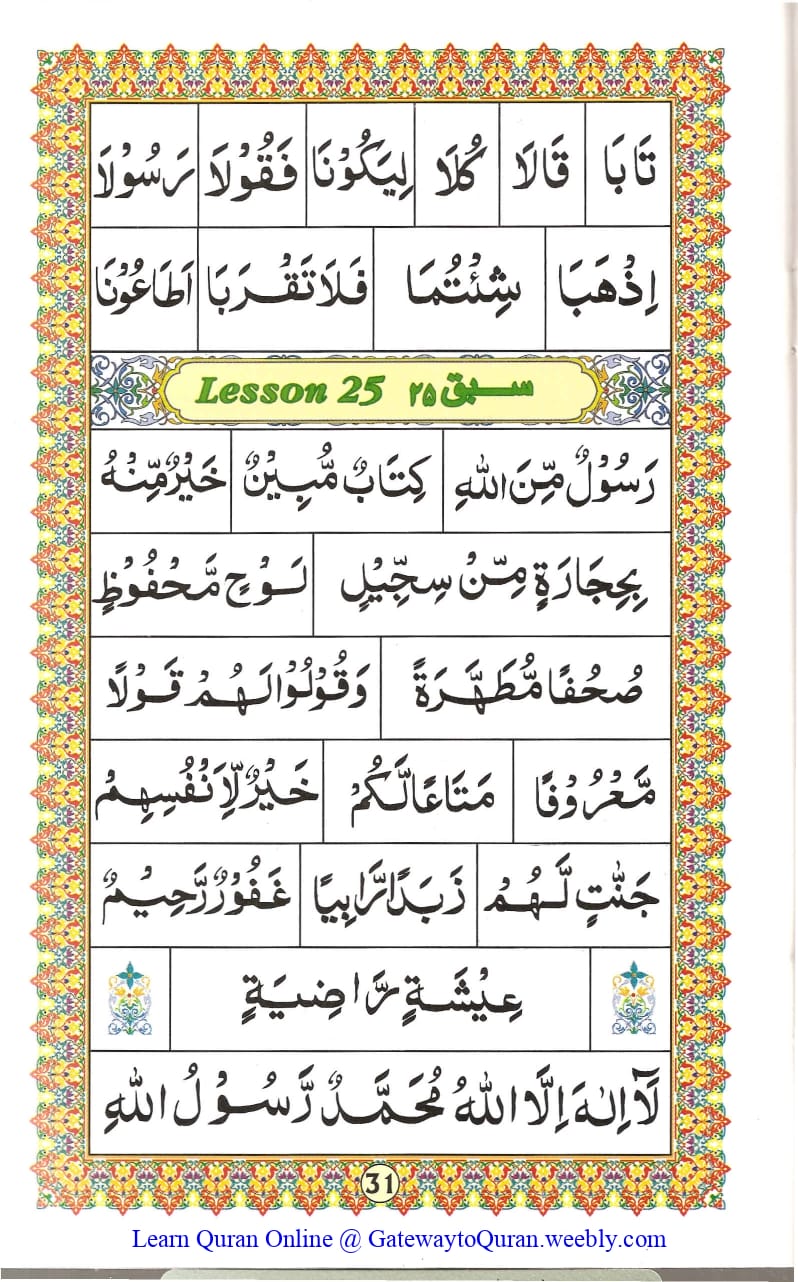 تَابَا قَالَا كُلَا لِيَكُوْنَا فَقُوْلَا رَسُوْلَا
اِذْهَبَا شِئْتُمَا فَلَا تَقْرَبَا اَطَاعُوْنَا
Lesson 25 سبق ۲۵
رَسُوْلٌ مِّنَ اللهِ كِتَابٌ مُّبِيْنٌ خَيْرٌ مِّنْهُ
بِحِجَارَةٍ مِّنْ سِجِّيْلٍ لَوْحٍ مَّحْفُوْظٍ
صُحُفًا مُّطَهَّرَةً وَقُوْلُوْا لَهُمْ قَوْلًا
مَّعْرُوْفًا مَتَاعًا لَّكُمْ خَيْرٌ لِّاَنْفُسِهِمْ
جَنّٰتٍ لَّهُمْ زَبَدًا رَّابِيًا غَفُوْرٌ رَّحِيْمٌ
عِيْشَةٍ رَّاضِيَةٍ
لَآ اِلٰهَ اِلَّا اللهُ مُحَمَّدٌ رَّسُوْلُ اللهِ
31
Learn Quran Online @ GatewaytoQuran.weebly.com